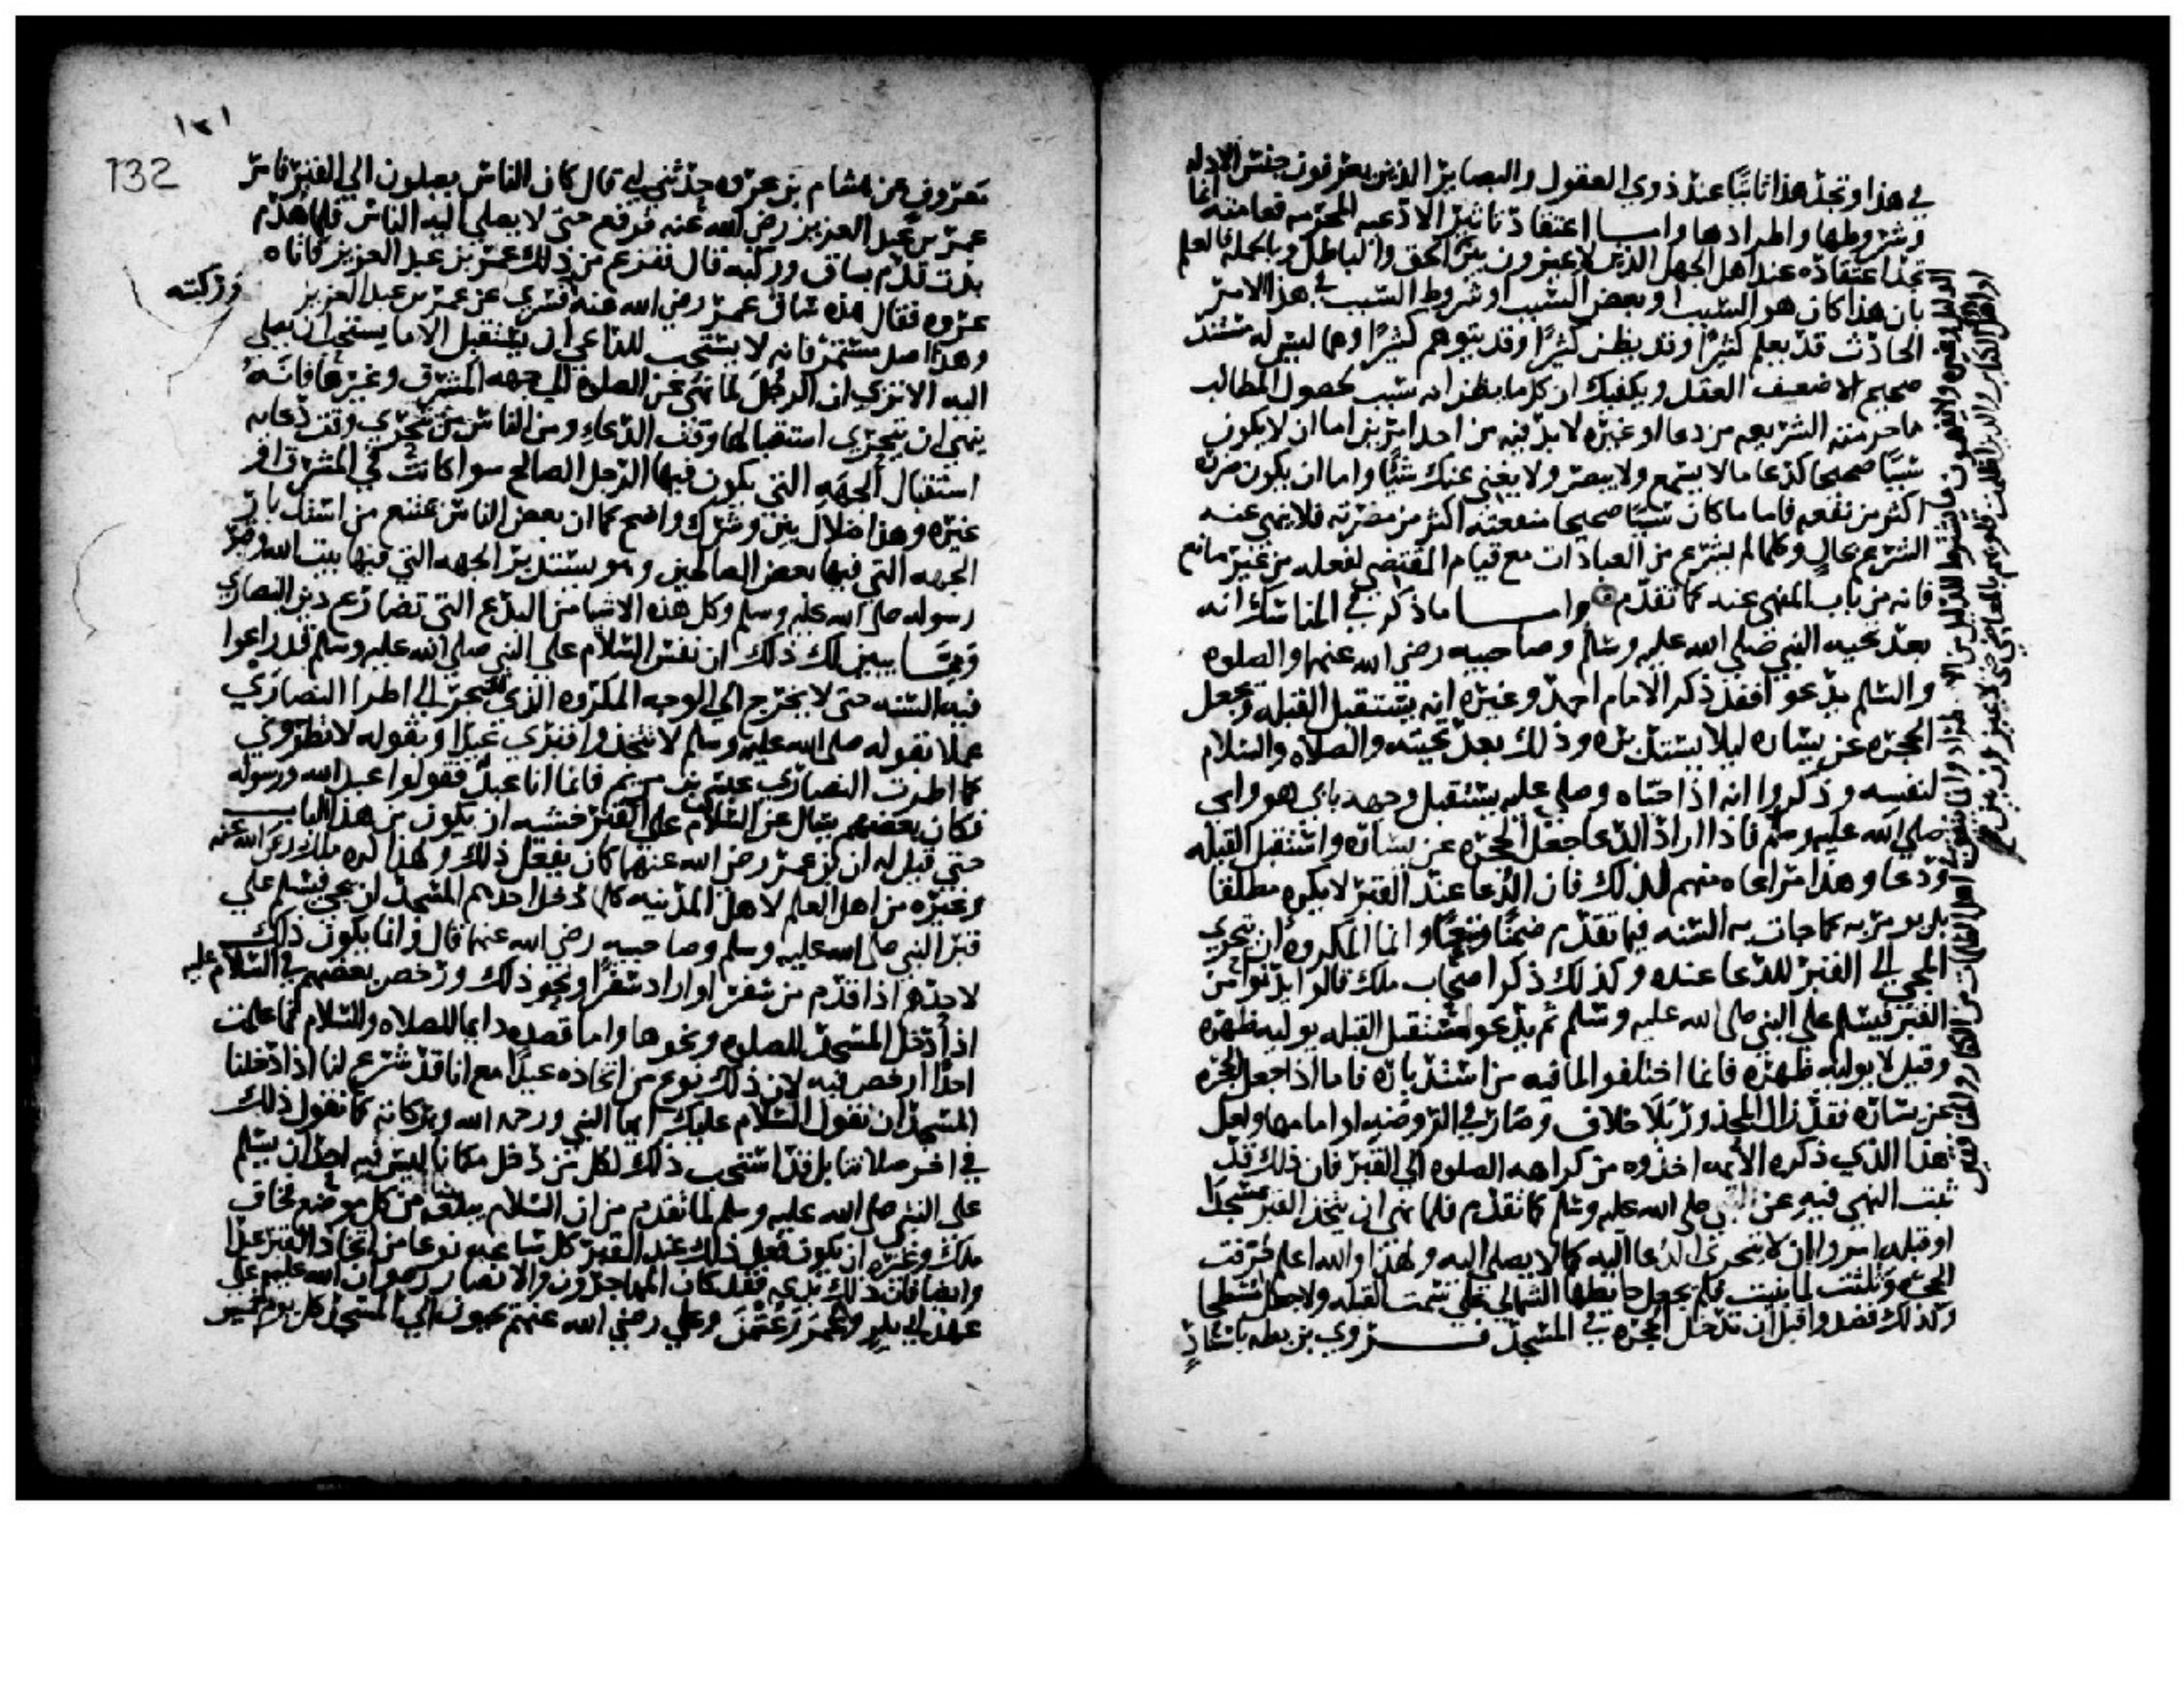 في هذا وتجد هذا ثابتا عند ذوي العقول والبصاير الذين يعرفون جنس الادله
وشروطها واطرادها واما اعتقاد تاثير الادعيه المحرمه فعامته انما
تجد اعتقاده عند اهل الجهل الذين لا يميزون بين الحق والباطل وبالجمله فالعلم
بان هذا كان هو السبب او بعض السبب او شروط السبب في هذا الامر
الحادث قد يعلم كثيرا وقد يظن كثيرا وقد يتوهم كثيرا وهما ليس له مستند
صحيح الا ضعيف العقل ويكفيك ان كلما يظن انه سبب لحصول المطالب
مما حرمته الشريعه من دعا او غيره لا بد فيه من احد امرين اما ان لا يكون
سببا صحيحا كدعا ما لا يسمع ولا يبصر ولا يغني عنك شيا واما ان يكون ضرره
اكثر من نفعه فاما ما كان سببا صحيحا منفعته اكثر من مضرته فلا ينهى عنه
الشرع بحال وكلما لم يشرع من العبادات مع قيام المقتضي لفعله من غير مانع
فانه من باب المنهي عنه كما تقدم واما ما ذكر في المناسك انه
بعد تحيه النبي صلى الله عليه وسلم وصاحبيه رضي الله عنهما والصلوه
والسلم يدعو فقد ذكر الامام احمد وغيره انه يستقبل القبله ويجعل
الحجره عن يساره ليلا يستدبره وذلك بعد تحيته والصلاه والسلام
لنفسه وذكروا انه اذا حياه وصلى عليه يستقبل وجهه بابي هو وامي
صلى الله عليه وسلم فاذا اراد الدعا جعل الحجره عن يساره واستقبل القبله
ودعا وهذا مراعاه منهم لذلك فان الدعا عند القبر لا يكره مطلقا
بل يومر به كما جات به السنه فيما تقدم ضمنا وتبعا وانما المكروه ان يتحرى
المجي الى القبر للدعا عنده وكذلك ذكر اصحاب ملك قالوا يدنوا من
القبر فيسلم على النبي صلى الله عليه وسلم ثم يدعو مستقبل القبله يوليه ظهره
وقيل لا يوليه ظهره فانما اختلفوا لما فيه من استدباره فاما اذا جعل الحجره
عن يساره فقد زال المحذور بلا خلاف وصار في الروضه او امامها ولعل
هذا الذي ذكره الايمه اخذوه من كراهه الصلوه الى القبر فان ذلك قد
ثبت النهي فيه عن النبي صلى الله عليه وسلم كما تقدم فلما نهى ان يتخذ القبر مسجدا
او قبله امروا بان لا يتحرى الدعا اليه كما لا يصلى اليه ولهذا والله اعلم حرفت
الحجره وثلثت لما بنيت فلم يجعل حايطها الشمالي على سمت القبله ولا جعل مسطحا
وكذلك قصدوا قبل ان تدخل الحجره في المسجد فروى بن بطه باسناد
١٣١
132
معروف عن هشام بن عروه حدثني ابي قال كان الناس يصلون الى القبر فامر
عمر بن عبد العزيز رضي الله عنه فرفع حتى لا يصلي اليه الناس فلما هدم
بدت قدم بساق وركبه قال ففزع من ذلك عمر بن عبد العزيز فاتاه
عروه فقال هذه ساق عمر رضي الله عنه وركبته فسري عن عمر بن عبد العزيز
وهذا اصل مستمر فانه لا يستحب للداعي ان يستقبل الا ما يستحب ان يصلي
اليه الا ترى ان الرجل لما نهي عن الصلوه الى جهه المشرق وغيرها فانه
ينهى ان يتحرى استقبالها وقت الدعاء ومن الناس من يتحرى وقت دعايه
استقبال الجهه التي يكون فيها الرجل الصالح سوا كانت في المشرق او
غيره وهذا ضلال بين وشرك واضح كما ان بعض الناس يمتنع من استدبار
الجهه التي فيها بعض الصالحين وهو يستدبر الجهه التي فيها بيت الله وقبر
رسوله صلى الله عليه وسلم وكل هذه الاشيا من البدع التي تضارع دين النصارى
ومما يبين لك ذلك ان نفس السلام على النبي صلى الله عليه وسلم قد راعوا
فيه السنه حتى لا يخرج الى الوجه المكروه الذي قد يجر الى اطرا النصارى
عملا بقوله صلى الله عليه وسلم لا تتخذوا قبري عيدا وبقوله لا تطروني
كما اطرت النصارى عيسى بن مريم فانما انا عبد فقولوا عبد الله ورسوله
فكان بعضهم يسال عن السلام على القبر خشيه ان يكون من هذا الباب
حتى قيل له ان بن عمر رضي الله عنهما كان يفعل ذلك ولهذا كره ملك رضي الله عنه
وغيره من اهل العلم لاهل المدينه كلما دخل احدهم المسجد ان يجي فيسلم على
قبر النبي صلى الله عليه وسلم وصاحبيه رضي الله عنهما قال وانما يكون ذلك
لاحدهم اذا قدم من سفر او اراد سفرا ونحو ذلك ورخص بعضهم في السلام عليه
اذا دخل المسجد للصلوه ونحوها واما قصده دايما للصلاه والسلام فما علمت
احدا رخص فيه لان ذلك نوع من اتخاذه عيدا مع انا قد شرع لنا اذا دخلنا
المسجد ان نقول السلام عليك ايها النبي ورحمه الله وبركاته كما نقول ذلك
في اخر صلاتنا بل قد استحب ذلك لكل من دخل مكانا ليس فيه احد ان يسلم
على النبي صلى الله عليه وسلم لما تقدم من ان السلام يبلغه من كل موضع فخاف
ملك وغيره ان يكون فعل ذلك عند القبر كل ساعه نوعا من اتخاذ القبر عيدا
وايضا فان ذلك بدعه فقد كان المهاجرون والانصار رضوان الله عليهم على
عهد ابي بكر وعمر وعثمن وعلي رضي الله عنهم يجيون الى المسجد كل يوم خمس